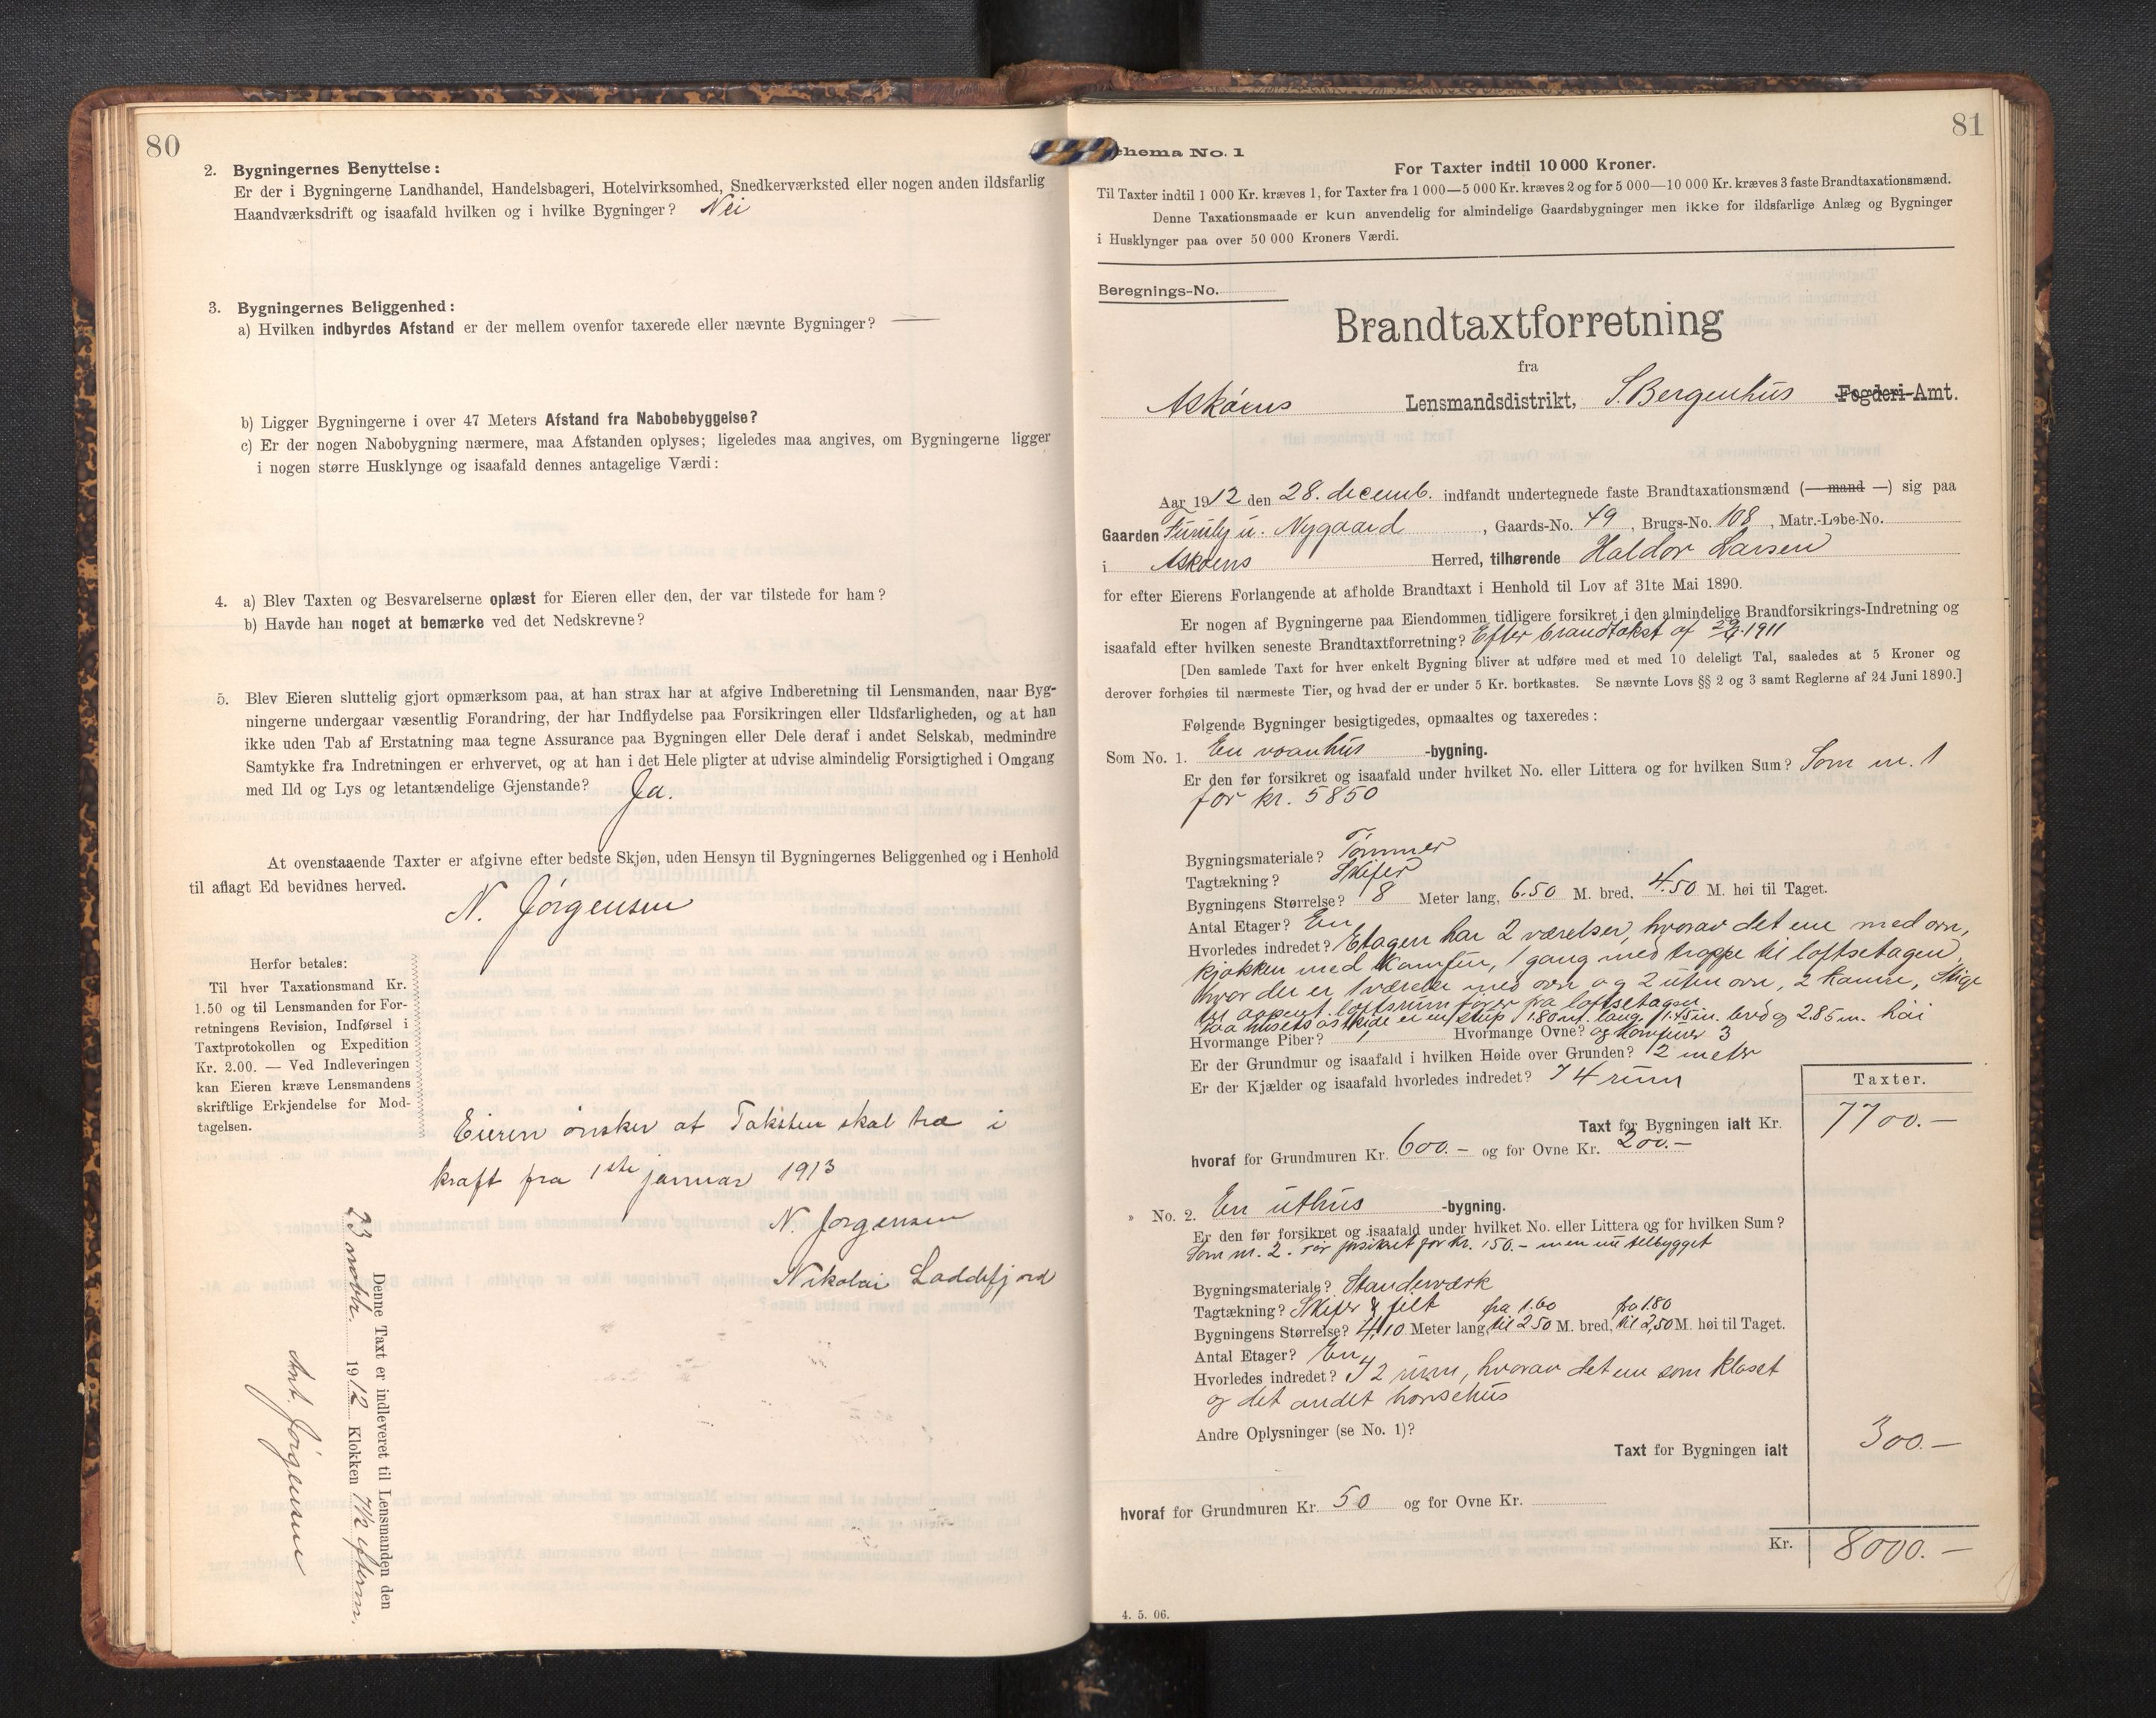 80
2. Bygningernes Benyttelse:
Er der i Bygningerne Landhandel, Handelsbageri, Hotelvirksomhed, Snedkerværksted eller nogen anden ildsfarlig
Haandværksdrift og isaafald hvilken og i hvilke Bygninger? Nei
3. Bygningernes Beliggenhed:
a) Hvilken indbyrdes Afstand er der mellem ovenfor taxerede eller nævnte Bygninger? —
b) Ligger Bygningerne i over 47 Meters Afstand fra Nabobebyggelse?
c) Er der nogen Nabobygning nærmere, maa Afstanden oplyses; ligeledes maa angives, om Bygningerne ligger
i nogen større Husklynge og isaafald dennes antagelige Værdi:
4. a) Blev Taxten og Besvarelserne oplæst for Eieren eller den, der var tilstede for ham?
b) Havde han noget at bemærke ved det Nedskrevne?
5. Blev Eieren sluttelig gjort opmærksom paa, at han strax har at afgive Indberetning til Lensmanden, naar Byg-
ningerne undergaar væsentlig Forandring, der har Indflydelse paa Forsikringen eller Ildsfarligheden, og at han
ikke uden Tab af Erstatning maa tegne Assurance paa Bygningen eller Dele deraf i andet Selskab, medmindre
Samtykke fra Indretningen er erhvervet, og at han i det Hele pligter at udvise almindelig Forsigtighed i Omgang
med Ild og Lys og letantændelige Gjenstande? Ja.
At ovenstaaende Taxter er afgivne efter bedste Skjøn, uden Hensyn til Bygningernes Beliggenhed og i Henhold
til aflagt Ed bevidnes herved.
N. Jörgensen
Herfor betales:
Til hver Taxationsmand Kr.
1.50 og til Lensmanden for For-
retningens Revision, Indførsel i
Taxtprotokollen og Expedition
Kr. 2.00. — Ved Indleveringen
kan Eieren kræve Lensmandens
skriftlige Erkjendelse for Mod-
tagelsen.
Eieren önsker at Taksten skal træ i
kraft fra 1ste januar 1913
N. Jorgensen
Nikolai Loddefjord
Denne Taxt er indleveret til Lensmanden den
23 novbr. 1912 Klokken 7½ efterm.
Ant. Jörgensen
81
chema No. 1
For Taxter indtil 10 000 Kroner.
Til Taxter indtil 1 000 Kr. kræves 1, for Taxter fra 1 000—5 000 Kr. kræves 2 og for 5 000—10 000 Kr. kræves 3 faste Brandtaxationsmænd.
Denne Taxationsmaade er kun anvendelig for almindelige Gaardsbygninger men ikke for ildsfarlige Anlæg og Bygninger
i Husklynger paa over 50 000 Kroners Værdi.
Beregnings-No.
Brandtaxtforretning
fra
Asköens Lensmandsdistrikt, S. Bergenhus Fogderi-Amt.
Aar 1912 den 28. decemb. indfandt undertegnede faste Brandtaxationsmænd (— mand —) sig paa
Gaarden Nygaard, Gaards-No. 49, Brugs-No. 108, Matr.-Løbe-No.
i Asköens Herred, tilhørende Haldor Larsen
for efter Eierens Forlangende at afholde Brandtaxt i Henhold til Lov af 31te Mai 1890.
Er nogen af Bygningerne paa Eiendommen tidligere forsikret i den almindelige Brandforsikrings-Indretning og
isaafald efter hvilken seneste Brandtaxtforretning? Efter brandtakst af 1911
[Den samlede Taxt for hver enkelt Bygning bliver at udføre med et med 10 deleligt Tal, saaledes at 5 Kroner og
derover forhøies til nærmeste Tier, og hvad der er under 5 Kr. bortkastes. Se nævnte Lovs §§ 2 og 3 samt Reglerne af 24 Juni 1890.]
Følgende Bygninger besigtigedes, opmaaltes og taxeredes:
Som No. 1. En vaanhus -bygning.
Er den før forsikret og isaafald under hvilket No. eller Littera og for hvilken Sum? Som nr. 1
for kr. 5850
Bygningsmateriale? Tömmer
Tagtækning? Skifer
Bygningens Størrelse? 8 Meter lang, 6.50 M. bred, 4.50 M. høi til Taget.
Antal Etager? En
Hvorledes indredet? Etagen har 2 værelser, hvorav det ene med ovn,
kjökken med Komfür, 1 gang med trappe til loftsetagen,
hvor der er 1 værelse med ovn og 2 uten ovn, 2 kamre, Stige
til aapent loftsrum förer fra loftsetagen
Paa husets östside er en skup 1.80 m. lang, 1.45 m. bred og 2.85 m. höi
Hvormange Piber? 1 Hvormange Ovne? og Komfürer 3
Er der Grundmur og isaafald i hvilken Høide over Grunden? 2 meter
Er der Kjælder og isaafald hvorledes indredet? 4 rüm
Taxter.
Taxt for Bygningen ialt Kr. 7700.—
hvoraf for Grundmuren Kr. 600.— og for Ovne Kr. 200.—
» No. 2. En uthus -bygning.
Er den før forsikret og isaafald under hvilket No. eller Littera og for hvilken Sum?
Som nr. 2. för forsikret for kr. 150.— men nü tilbygget
Bygningsmateriale? Standeværk
Tagtækning? Skifer & filt fra 1.60 fra 1.80
Bygningens Størrelse? 4,10 Meter lang, til 2.50 M. bred, til 2,50 M. høi til Taget.
Antal Etager? En
Hvorledes indredet? I 2 rum, hvorav det ene som kloset
og det andet hönsehus
Andre Oplysninger (se No. 1)?
Taxt for Bygningen ialt 300.—
hvoraf for Grundmuren Kr. 50 og for Ovne Kr.
Kr. 8000.—
4. 5. 06.